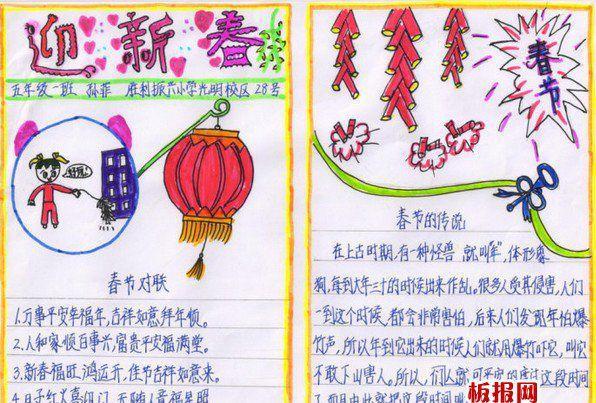 迎新春
五年级一班 孙菲 胜利振兴小学光明校区 28号
春节对联
1.万事平安幸福年,吉祥如意拜年顺。
2.人和家顺百事兴,富贵平安福满堂。
3.新春福旺鸿运开,佳节吉祥如意来。
春节
春节的传说
在上古时期,有一种怪兽 就叫"年",体形
狗,每到大年三十的时候出来作乱。很多人受其侵害,人们
一到这个时候,都会非常害怕,后来人们发现年怕爆
竹声,所以年到它出来的时候人们就用爆竹吓它,叫它
不敢下山害人。所以,们人就可平安的度过这段时间
板报网